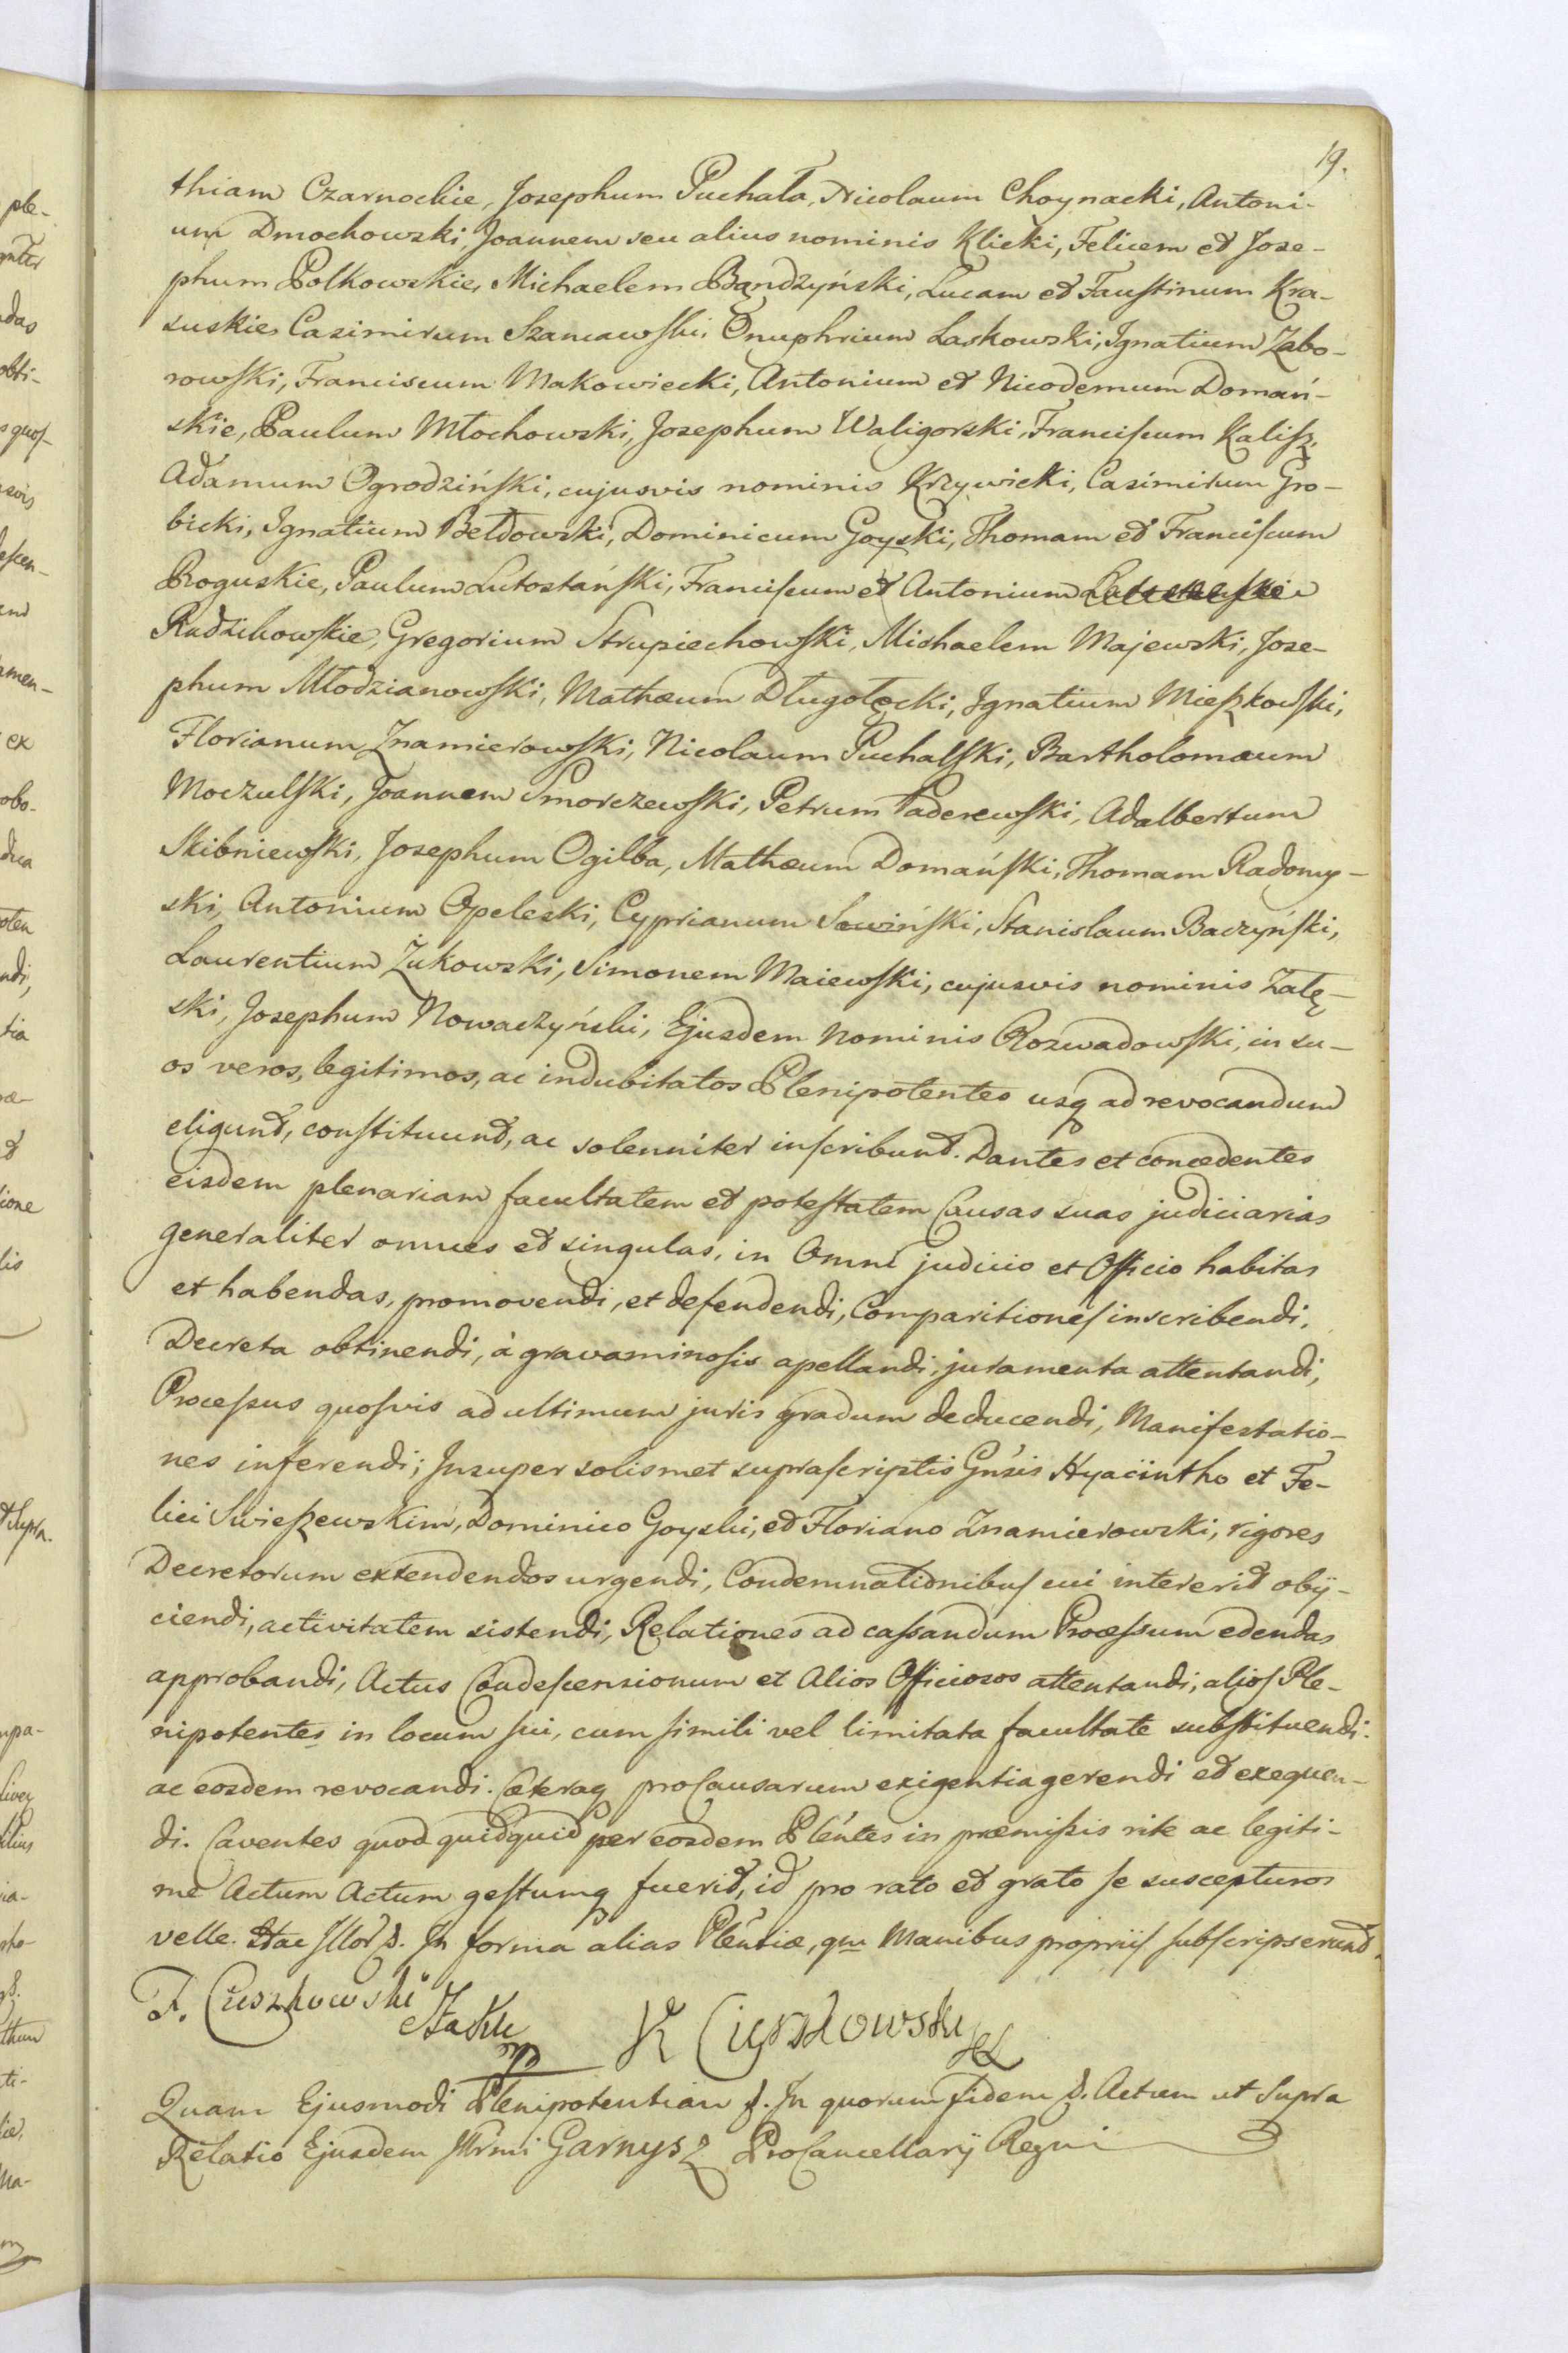 19.
thiam Czarnockie, Josephum Puchała, Nicolaum Choynacki, Antoni-
um Dmochowski, Joannem seu alius nominis Klicki, Felicem et Jose-
phum Polkowskie, Michaelem Bądzyński, Lucam et Faustinum Kra-
suskie, Casimirum Szaniawski, Onuphrium Laskowski, Ignatium Zabo-
rowski, Franciscum Makowiecki, Antonium et Nicodemum Domań-
skie, Paulum Młochowski, Josephum Waligorski, Franciscum Kalisz,
Adamum Ogrodziński, cujusvis nominis Krzywicki, Casimirum Gro-
bicki, Ignatium Bełdowski, Dominicum Goyski, Thomam et Franciscum
Roguskie, Paulum Lutostański, Franciscum et Antonium
Radzikowskie, Gregorium Strupiechowski, Michaelem Majewski, Jose-
phum Młodzianowski, Mathæum Długołęcki, Ignatium Mieszkowski,
Florianum Znamierowski, Nicolaum Puchalski, Bartholomæum
Moczulski, Joannem Smorczewski, Petrum Paderewski, Adalbertum
Skibniewski, Josephum Ogilba, Mathæum Domański, Thomam Radomy-
ski, Antonium Opeleski, Cyprianum Sowiński, Stanislaum Baczyński,
Laurentium Żukowski, Simonem Maiewski, cujusvis nominis Zalę-
ski, Josephum Nowaczyński, Ejusdem Nominis Rozwadowski, in su-
os veros, legitimos, ac indubitatos Plenipotentes usq ad revocandum
eligund, constituund, ac solenniter inscribund. Dantes et concedentes
eisdem plenariam facultatem et potestatem Causas suas judiciarias
generaliter omnes et singulas, in Omni judicio et Officio habitas
et habendas, promovendi, et defendendi, Comparitiones inscribendi,
Decreta obtinendi, à gravaminosis apellandi, juramenta attentandi,
Processus quosvis ad ultimum juris gradum deducendi, Manifestatio-
nes inferendi; Insuper solismet suprascriptis Gnsis Hyacintho et Fe-
lici Swieszewskim, Dominico Goyski, et Floriano Znamierowski, rigores
Decretorum extendendos urgendi, Condemnationibus cui intererit obij-
ciendi, activitatem sistendi, Relationes ad cassandum Processum edendas
approbandi, Actus Condescensionum et Alios Officiosos attentandi, alios Ple-
nipotentes in locum sui, cum simili vel limitata facultate substituendi.
ac eosdem revocandi. Cæteraq pro Causarum exigentia gerendi et exequen-
di. Caventes quod quidquid per eosdem Pléntes in præmissis rite ac legiti-
me Actum Actum gestumq fuerit, id pro rato et grato se suscepturos
velle. Hac In forma alias Pléntiæ, qm Manibus propriis subscripserund.
F. Cieszkowski
K Cieszkowski
Quam Ejusmodi Plenipotentiam In quorum fidem Actum ut Supra
Relatio Ejusdem Garnysz ProCancellarij Regni